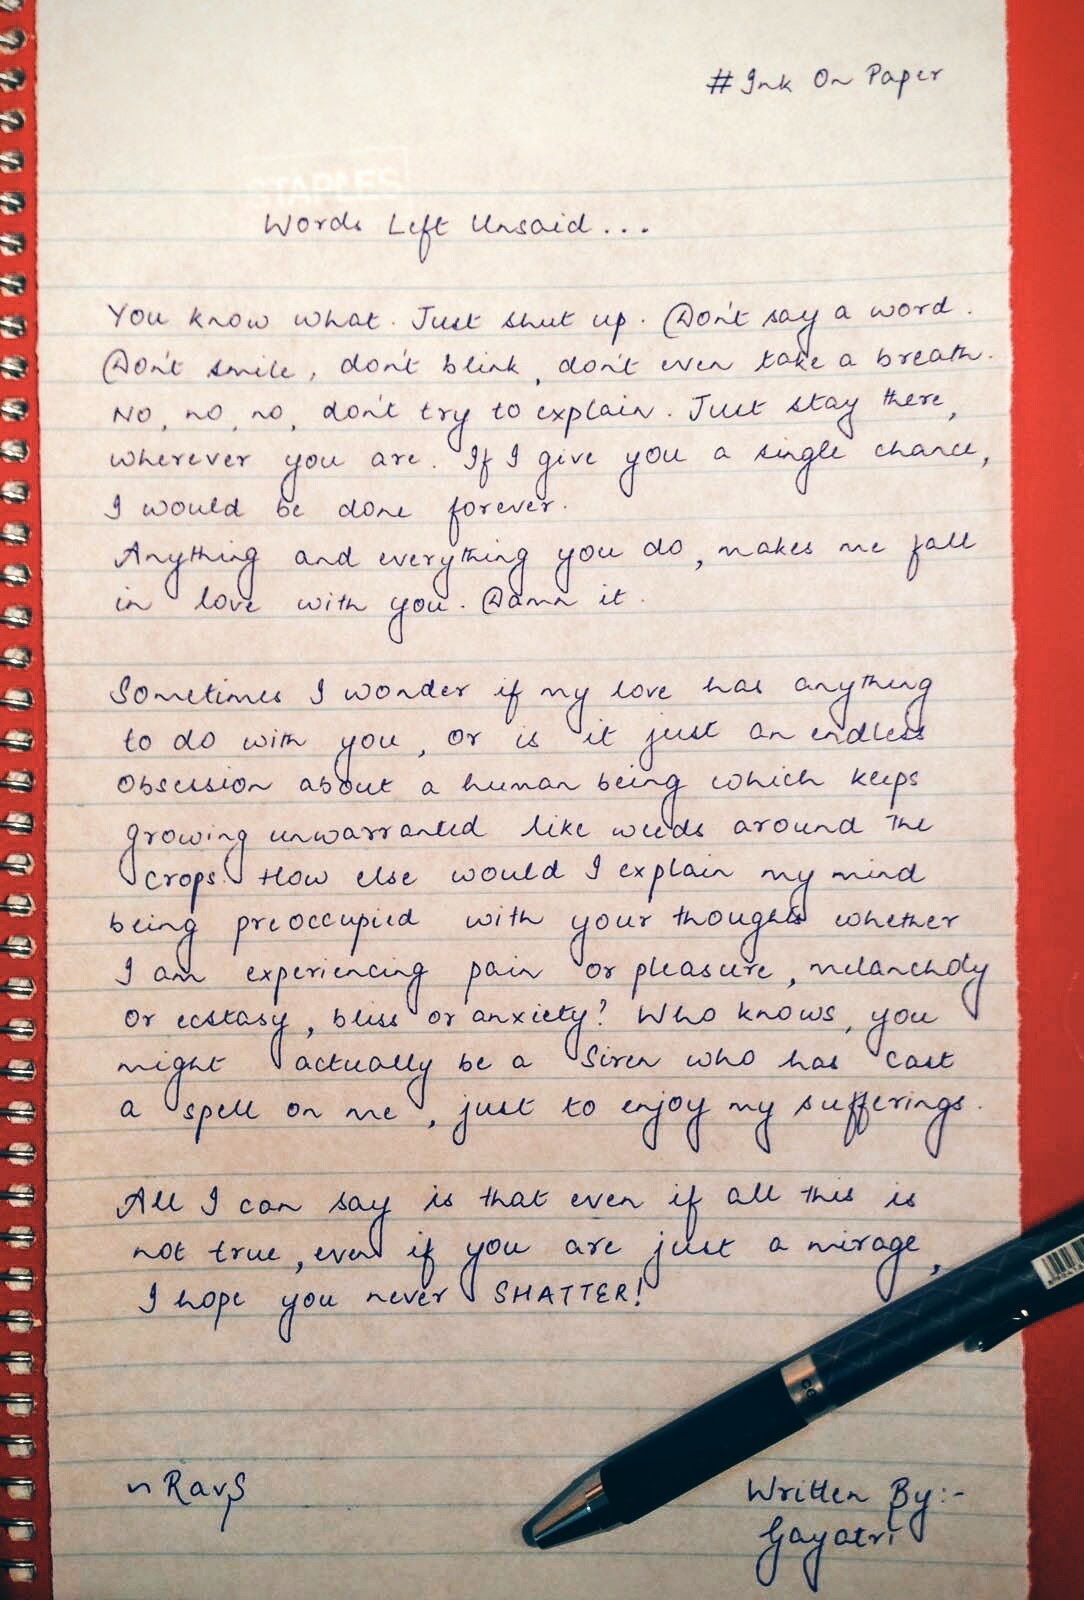 # Ink On Paper
STAPLES
Words Left Unsaid...
You know what. Just shut up. Don't say a word.
Don't smile, don't blink, don't even take a breath.
No, no, no, don't try to explain. Just stay there,
wherever you are. If I give you a single chance,
I would be done forever.
Anything and everything you do, makes me fall
in love with you. Damn it.
Sometimes I wonder if my love has anything
to do with you, or is it just an endless
obsession about a human being which keeps
growing unwarranted like weeds around the
crops. How else would I explain my mind
being preoccupied with your thoughts whether
I am experiencing pain or pleasure, melancholy
or ecstasy, bliss or anxiety? Who knows, you
might actually be a Siren who has cast
a spell on me, just to enjoy my sufferings.
All I can say is that even if all this is
not true, even if you are just a mirage,
I hope you never SHATTER!
~ RavS
Written By:-
Gayatri